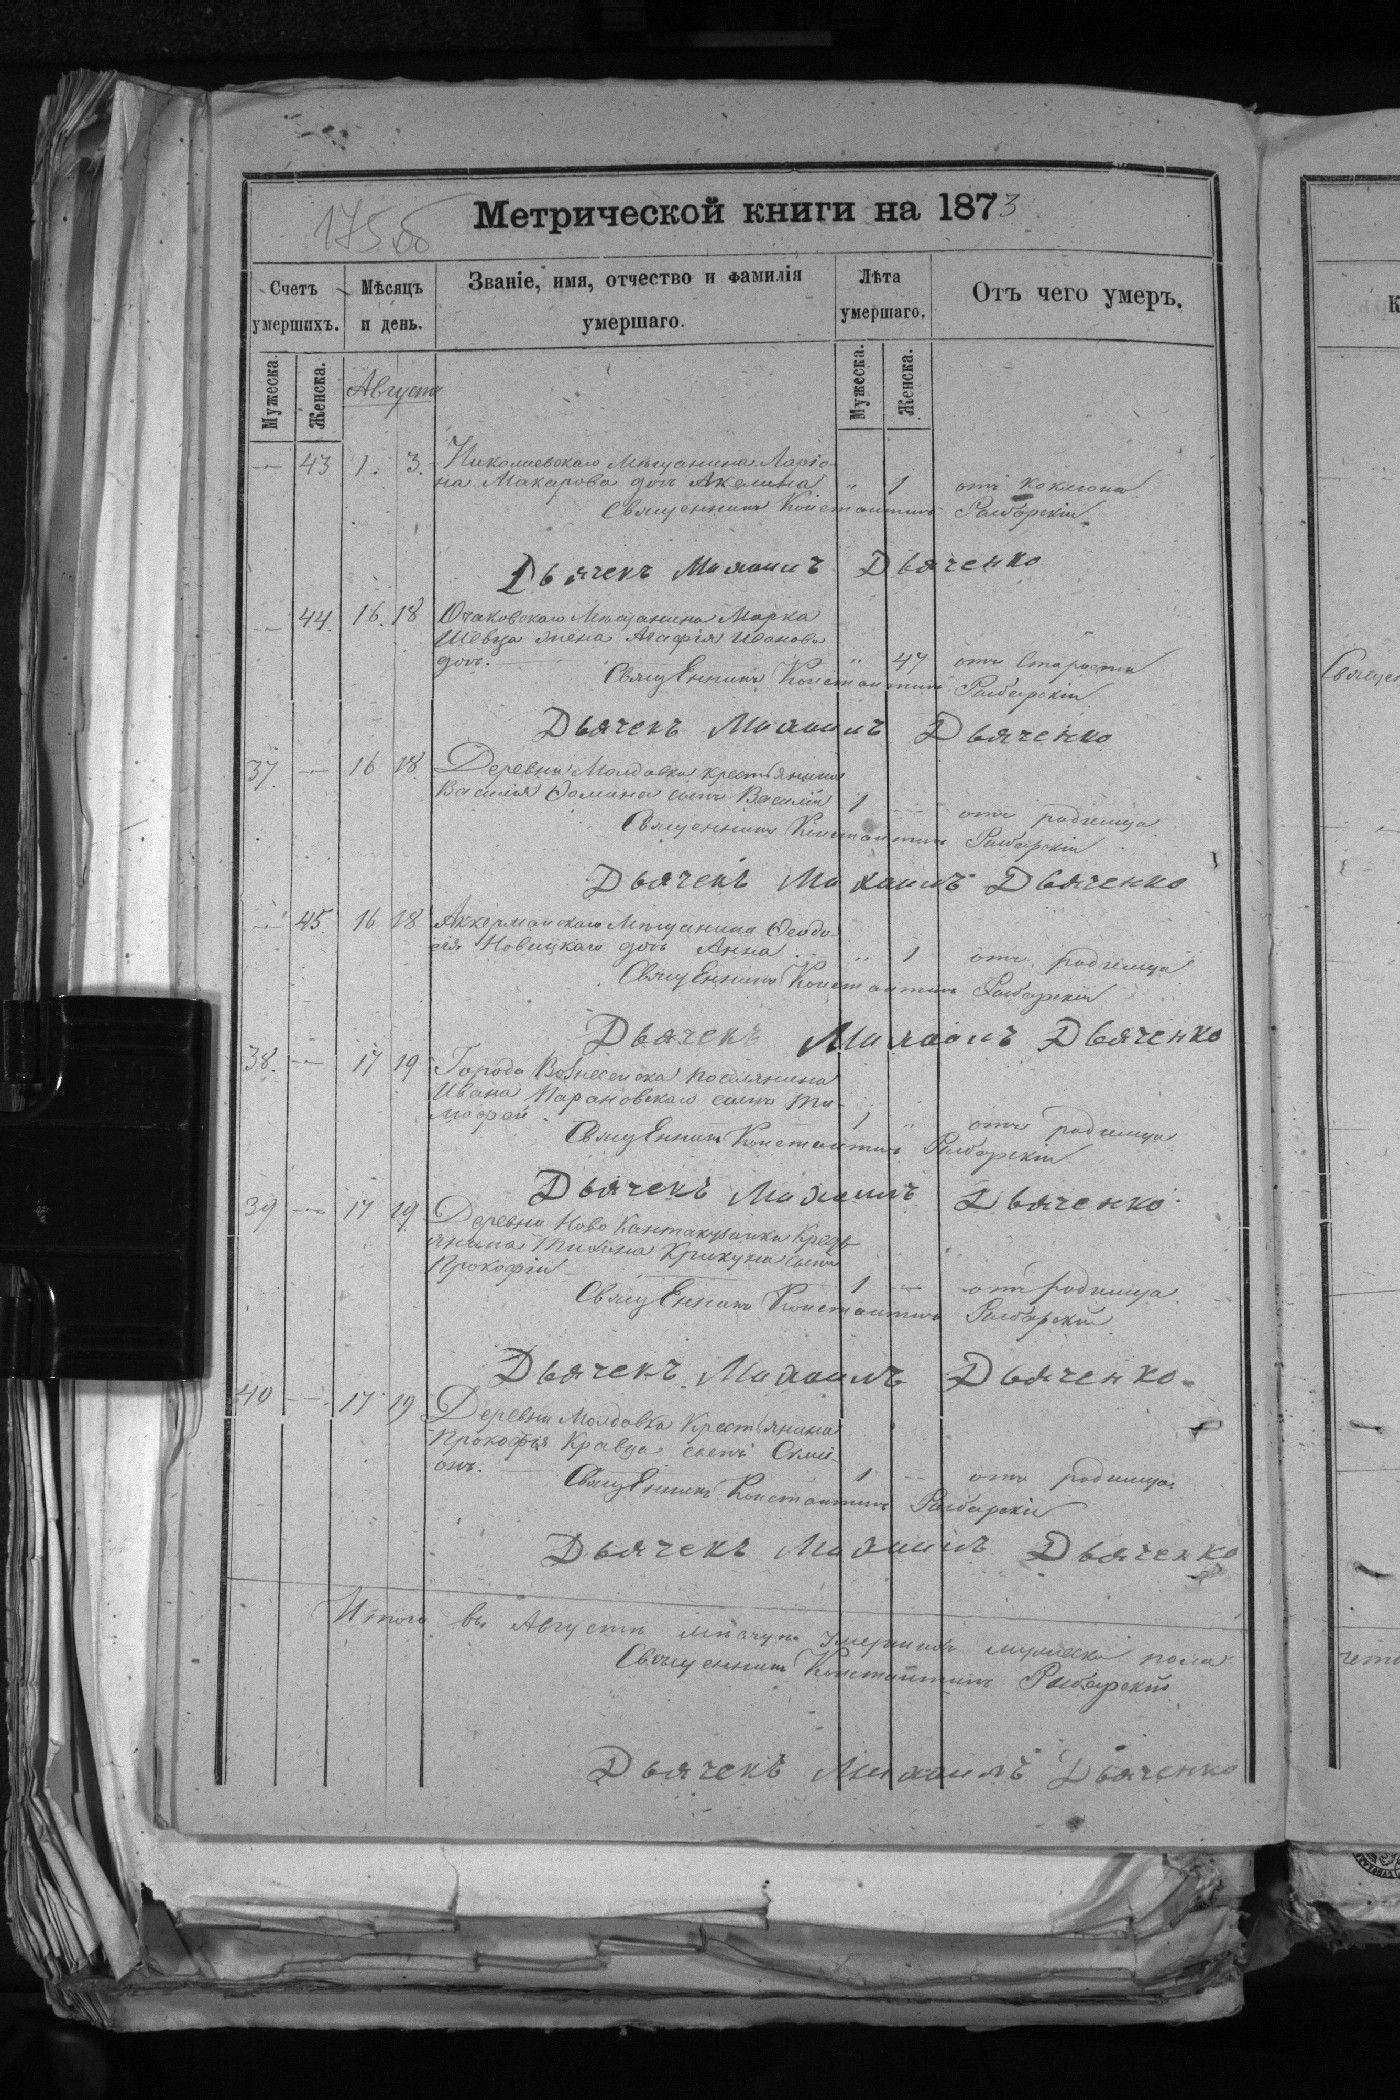 175 об
Метрической книги на 1873
Счетъ умершихъ.
Мѣсяцъ и день.
Званіе, имя, отчество и фамилія умершаго.
Лѣта умершаго.
Отъ чего умеръ.
Мужеска.
Женска.
Августъ
Мужеска.
Женска.
— 43 1. 3. Николаевскаго Мѣщанина Ларіо-
на Макарова дочь Акелина " 1 отъ коклюша
Священникъ Константинъ
Дьячекъ Михаилъ Дьяченко
— 44. 16. 18 Очаковскаго Мѣщанина Марка
Шевца жена Агафія Иванова
дочь. " 47 отъ Старости
Священникъ Константинъ
Дьячекъ Михаилъ Дьяченко
37. — 16 18 Деревни Молдавка крестьянина
Василія Фомина сынъ Василій 1 — отъ родимца
Священникъ Константинъ
Дьячекъ Михаилъ Дьяченко
— 45. 16 18 Аккерманскаго Мѣщанина Феодо-
сія Новицкаго дочь Анна " 1 отъ родимца
Священникъ Константинъ
Дьячекъ Михаилъ Дьяченко
38. — 17 19 Города Вознесенска поселянина
Ивана сынъ Ти-
мофей. 1 " отъ родимца
Священникъ Константинъ
Дьячекъ Михаилъ Дьяченко
39 — 17 19. Деревни Ново Кантакузинки Кресть-
янина Тихона Крикуна сынъ
Прокофій 1 — отъ родимца
Священникъ Константинъ
Дьячекъ Михаилъ Дьяченко
40 — 17 19 Деревни Молдавка Крестьянина
Прокофія Кравца сынъ Симі-
онъ. 1 — отъ родимца
Священникъ Константинъ
Дьячекъ Михаилъ Дьяченко
Итого въ Августѣ мѣсяцѣ умершихъ мужеска пола
Священникъ Константинъ
Дьячекъ Михаилъ Дьяченко